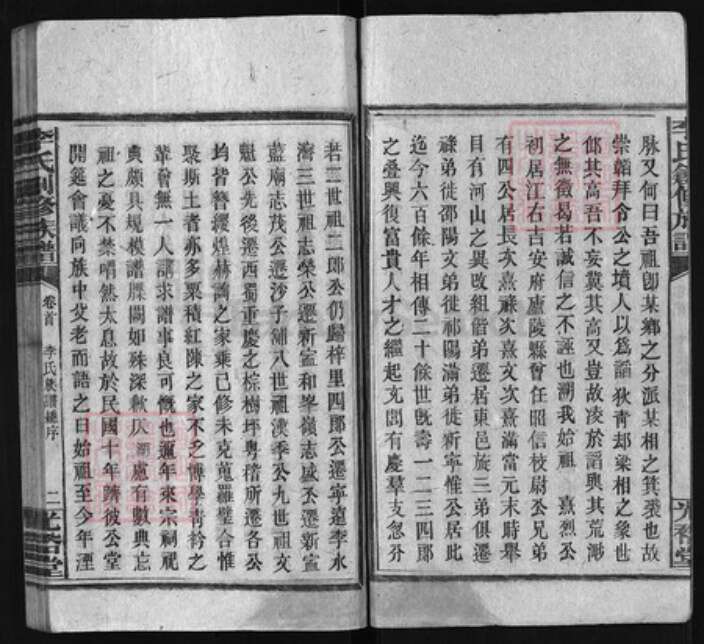 脉又何曰吾祖卽某鄉之分派某相之箕裘也故
崇韜拜令公之墳人以爲謟狄靑却梁相之象世
邵其高吾不妄冀其高又豈故凌於謟與其荒渺
之無徵曷若誠信之不誣也溯我始祖 熹烈公
初居江右吉安府廬陵縣曾任昭信校尉公兄弟
有四公居長次熹祿次熹文次熹滿當元末時舉
目有河山之異攺組偕弟遷居東邑旋三弟俱遷
祿弟徙邵陽文弟徙祁陽滿弟徙新寧惟公居此
迄今六百餘年相傳二十餘世旣壽一二三四郎
之叠興復富貴人才之繼起充閭有慶羣支忽分
若二世祖二郎公仍歸梓里四郎公遷寧遠李水
灣三世祖志榮公遷新寧和峯嶺志盛公遷新寧
藍廟志茂公遷沙子浦八世祖漢季公九世祖文
魁公先後遷西蜀重慶之棕樹坪粤稽所遷各公
均皆簪纓煌赫詢之家乘已修未克蒐羅璧合惟
聚斯土者亦多粟積紅陳之家不乏博學靑衿之
輩曾無一人講求譜事良可慨也邇年來宗祠祀
典頗具規模譜牒闕如殊深歉仄溯處有數典忘
祖之憂不禁喟然太息故於民國十年躋彼公堂
開筵會議向族中父老而語之曰始祖至今年湮
李氏創修族譜
卷首 李氏族譜總序
二
光裕堂
李氏創修族譜
光裕堂